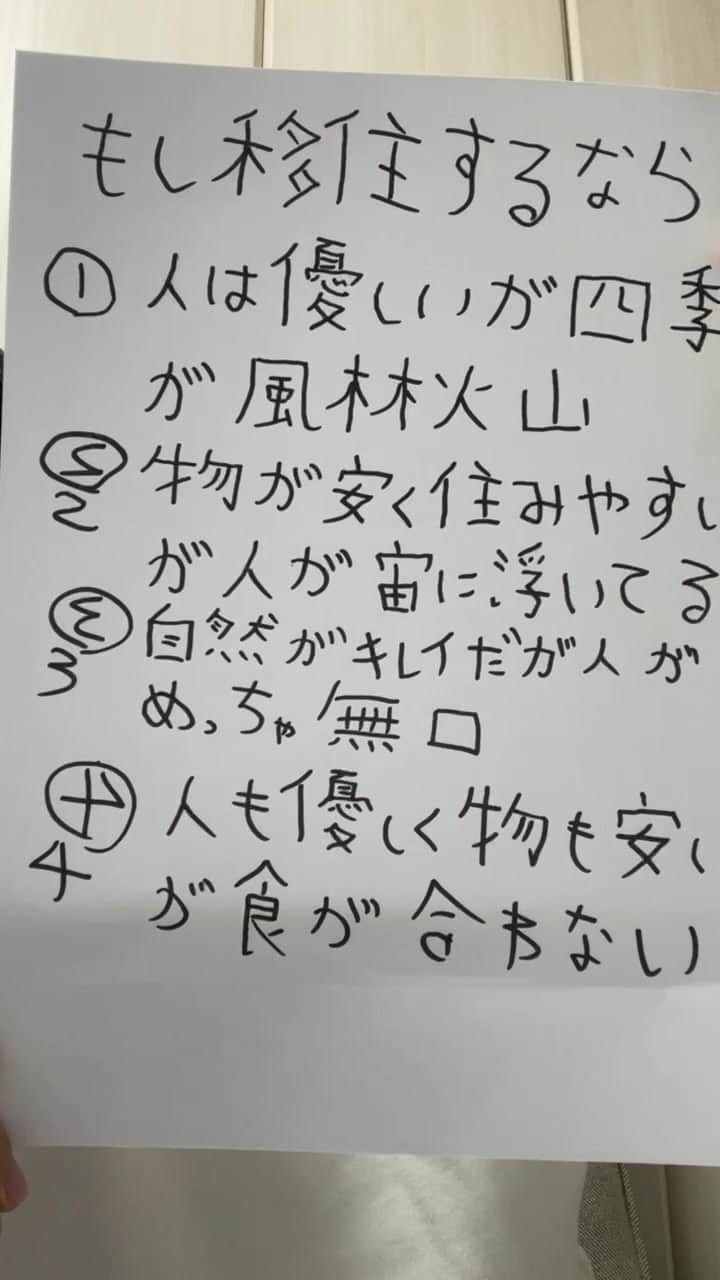 もし移住するなら
① 人は優しいが四季
が風林火山
2 物が安く住みやすい
が人が宙に浮いてる
3 自然がキレイだが人が
めっちゃ無口
4 人も優しく物も安い
が食が合わない